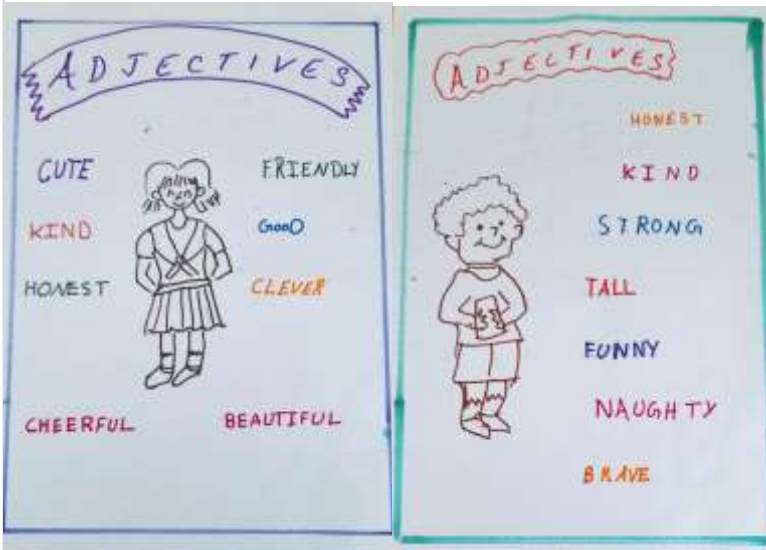 ADJECTIVES
CUTE
FRIENDLY
KIND
GOOD
HONEST
CLEVER
CHEERFUL
BEAUTIFUL
ADJECTIVES
HONEST
KIND
STRONG
TALL
FUNNY
NAUGHTY
BRAVE